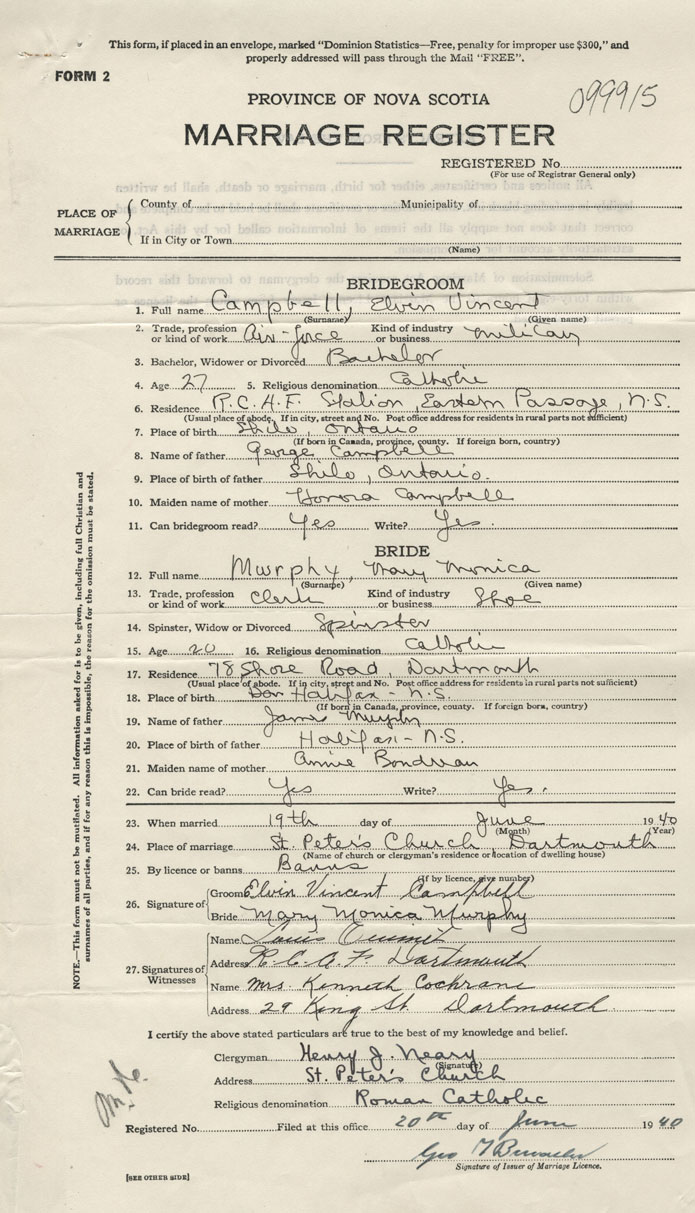 This form, if placed in an envelope, marked "Dominion Statistics—Free, penalty for improper use $300," and
properly addressed will pass through the Mail "FREE".
FORM 2
099915
PROVINCE OF NOVA SCOTIA
MARRIAGE REGISTER
REGISTERED No.
(For use of Registrar General only)
PLACE OF MARRIAGE
County of Municipality of
If in City or Town
(Name)
BRIDEGROOM
1. Full name Campbell, Elvin Vincent
(Surname) (Given name)
2. Trade, profession or kind of work Air-force Kind of industry or business military
3. Bachelor, Widower or Divorced Bachelor
4. Age 27 5. Religious denomination Catholic
6. Residence R.C.A.F. Station, Eastern Passage, N.S.
(Usual place of abode. If in city, street and No. Post office address for residents in rural parts not sufficient)
7. Place of birth Shilo, Ontario
(If born in Canada, province, county. If foreign born, country)
8. Name of father George Campbell
9. Place of birth of father Shilo, Ontario.
10. Maiden name of mother Honora Campbell
11. Can bridegroom read? Yes Write? Yes.
BRIDE
12. Full name Murphy, Mary Monica
(Surname) (Given name)
13. Trade, profession or kind of work Clerk Kind of industry or business Shoe
14. Spinster, Widow or Divorced Spinster
15. Age 20 16. Religious denomination Catholic
17. Residence 78 Shore Road, Dartmouth
(Usual place of abode. If in city, street and No. Post office address for residents in rural parts not sufficient)
18. Place of birth Halifax - N.S.
(If born in Canada, province, county. If foreign born, country)
19. Name of father James Murphy
20. Place of birth of father Halifax - N.S.
21. Maiden name of mother Annie Bondreau
22. Can bride read? Yes Write? Yes.
23. When married 19th day of June 1940
(Month) (Year)
24. Place of marriage St. Peter's Church, Dartmouth
(Name of church or clergyman's residence or location of dwelling house)
25. By licence or banns Banns
(If by licence, give number)
26. Signature of
Groom Elvin Vincent Campbell
Bride Mary Monica Murphy
27. Signatures of Witnesses
Name Louis Ouimet
Address R.C.A.F. Dartmouth
Name Mrs. Kenneth Cochrane
Address 29 King St. Dartmouth.
I certify the above stated particulars are true to the best of my knowledge and belief.
Clergyman Henry J. Neary
(Signature)
Address St. Peter's Church
Religious denomination Roman Catholic
Registered No. Filed at this office 20th day of June 1940
Geo
Signature of Issuer of Marriage Licence.
[SEE OTHER SIDE]
NOTE.—This form must not be mutilated. All information asked for is to be given, including full Christian and
surnames of all parties, and if for any reason this is impossible, the reason for the omission must be stated.